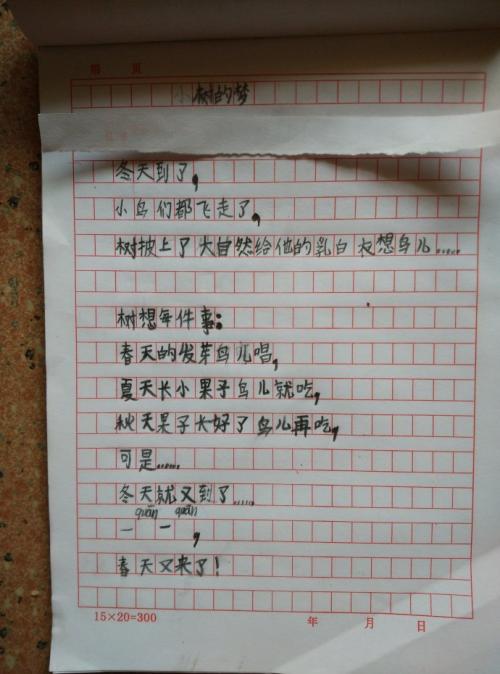 第 页
小树的梦
冬天到了,
小鸟们都飞走了,
树披上了大自然给他的乳白衣想鸟儿……
树想每件事:
春天的发芽鸟儿唱,
夏天长小果子鸟儿就吃,
秋天果子长好了鸟儿再吃,
可是……
冬天就又到了……
quān quān
一 一 ,
春天又来了!
15×20=300 年 月 日